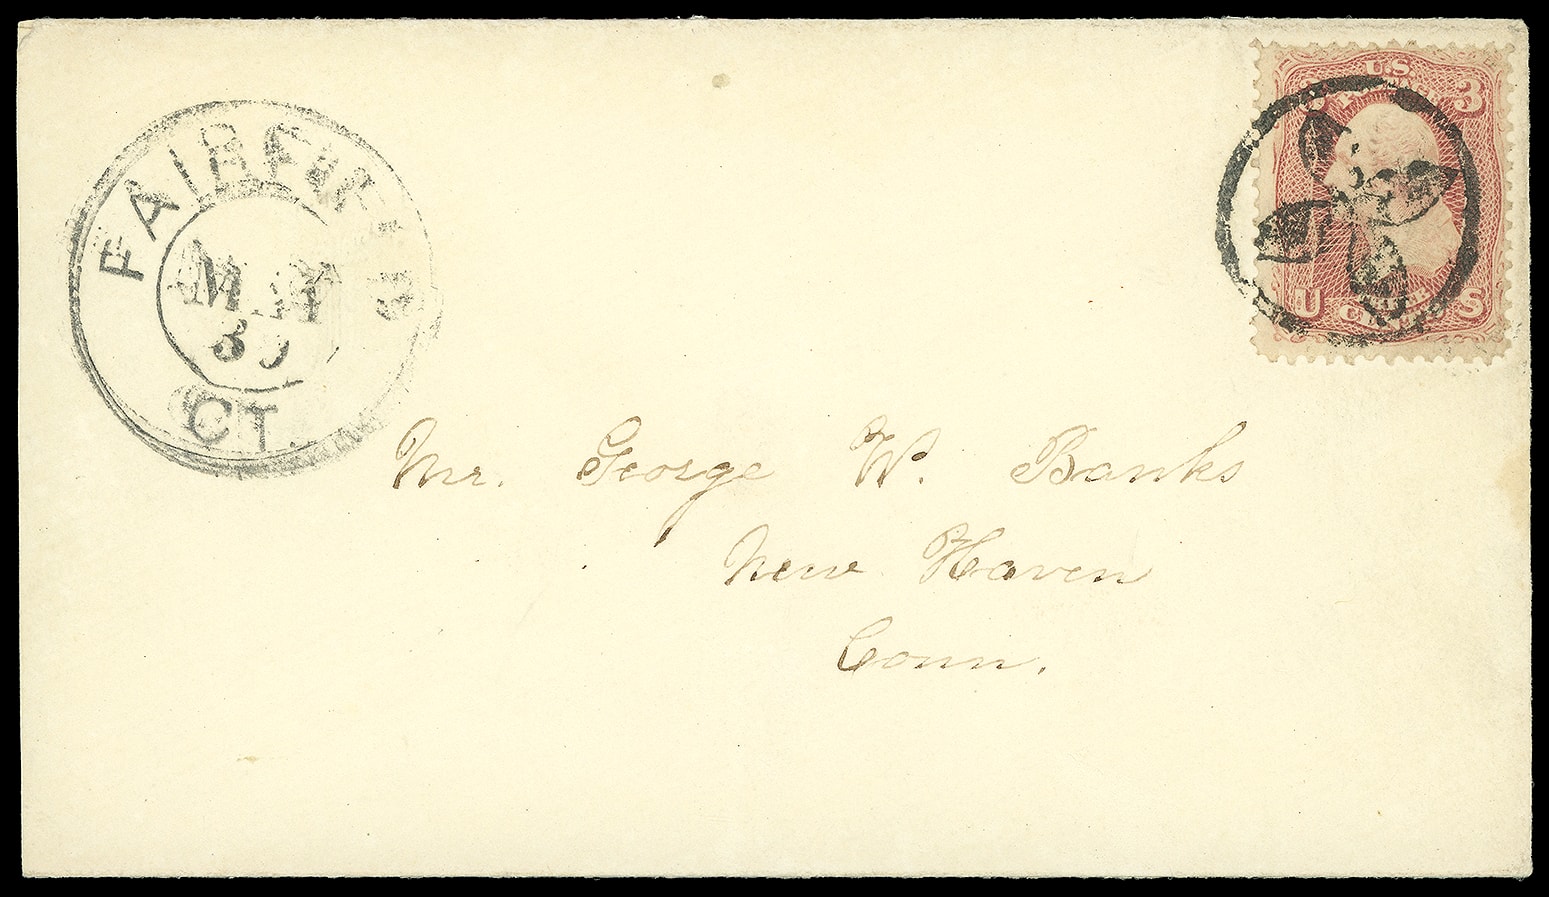 FAIRFIELD
MAY
30
CT.
U.S.
3
U S
CENTS
Mr. George W. Banks
New Haven
Conn.